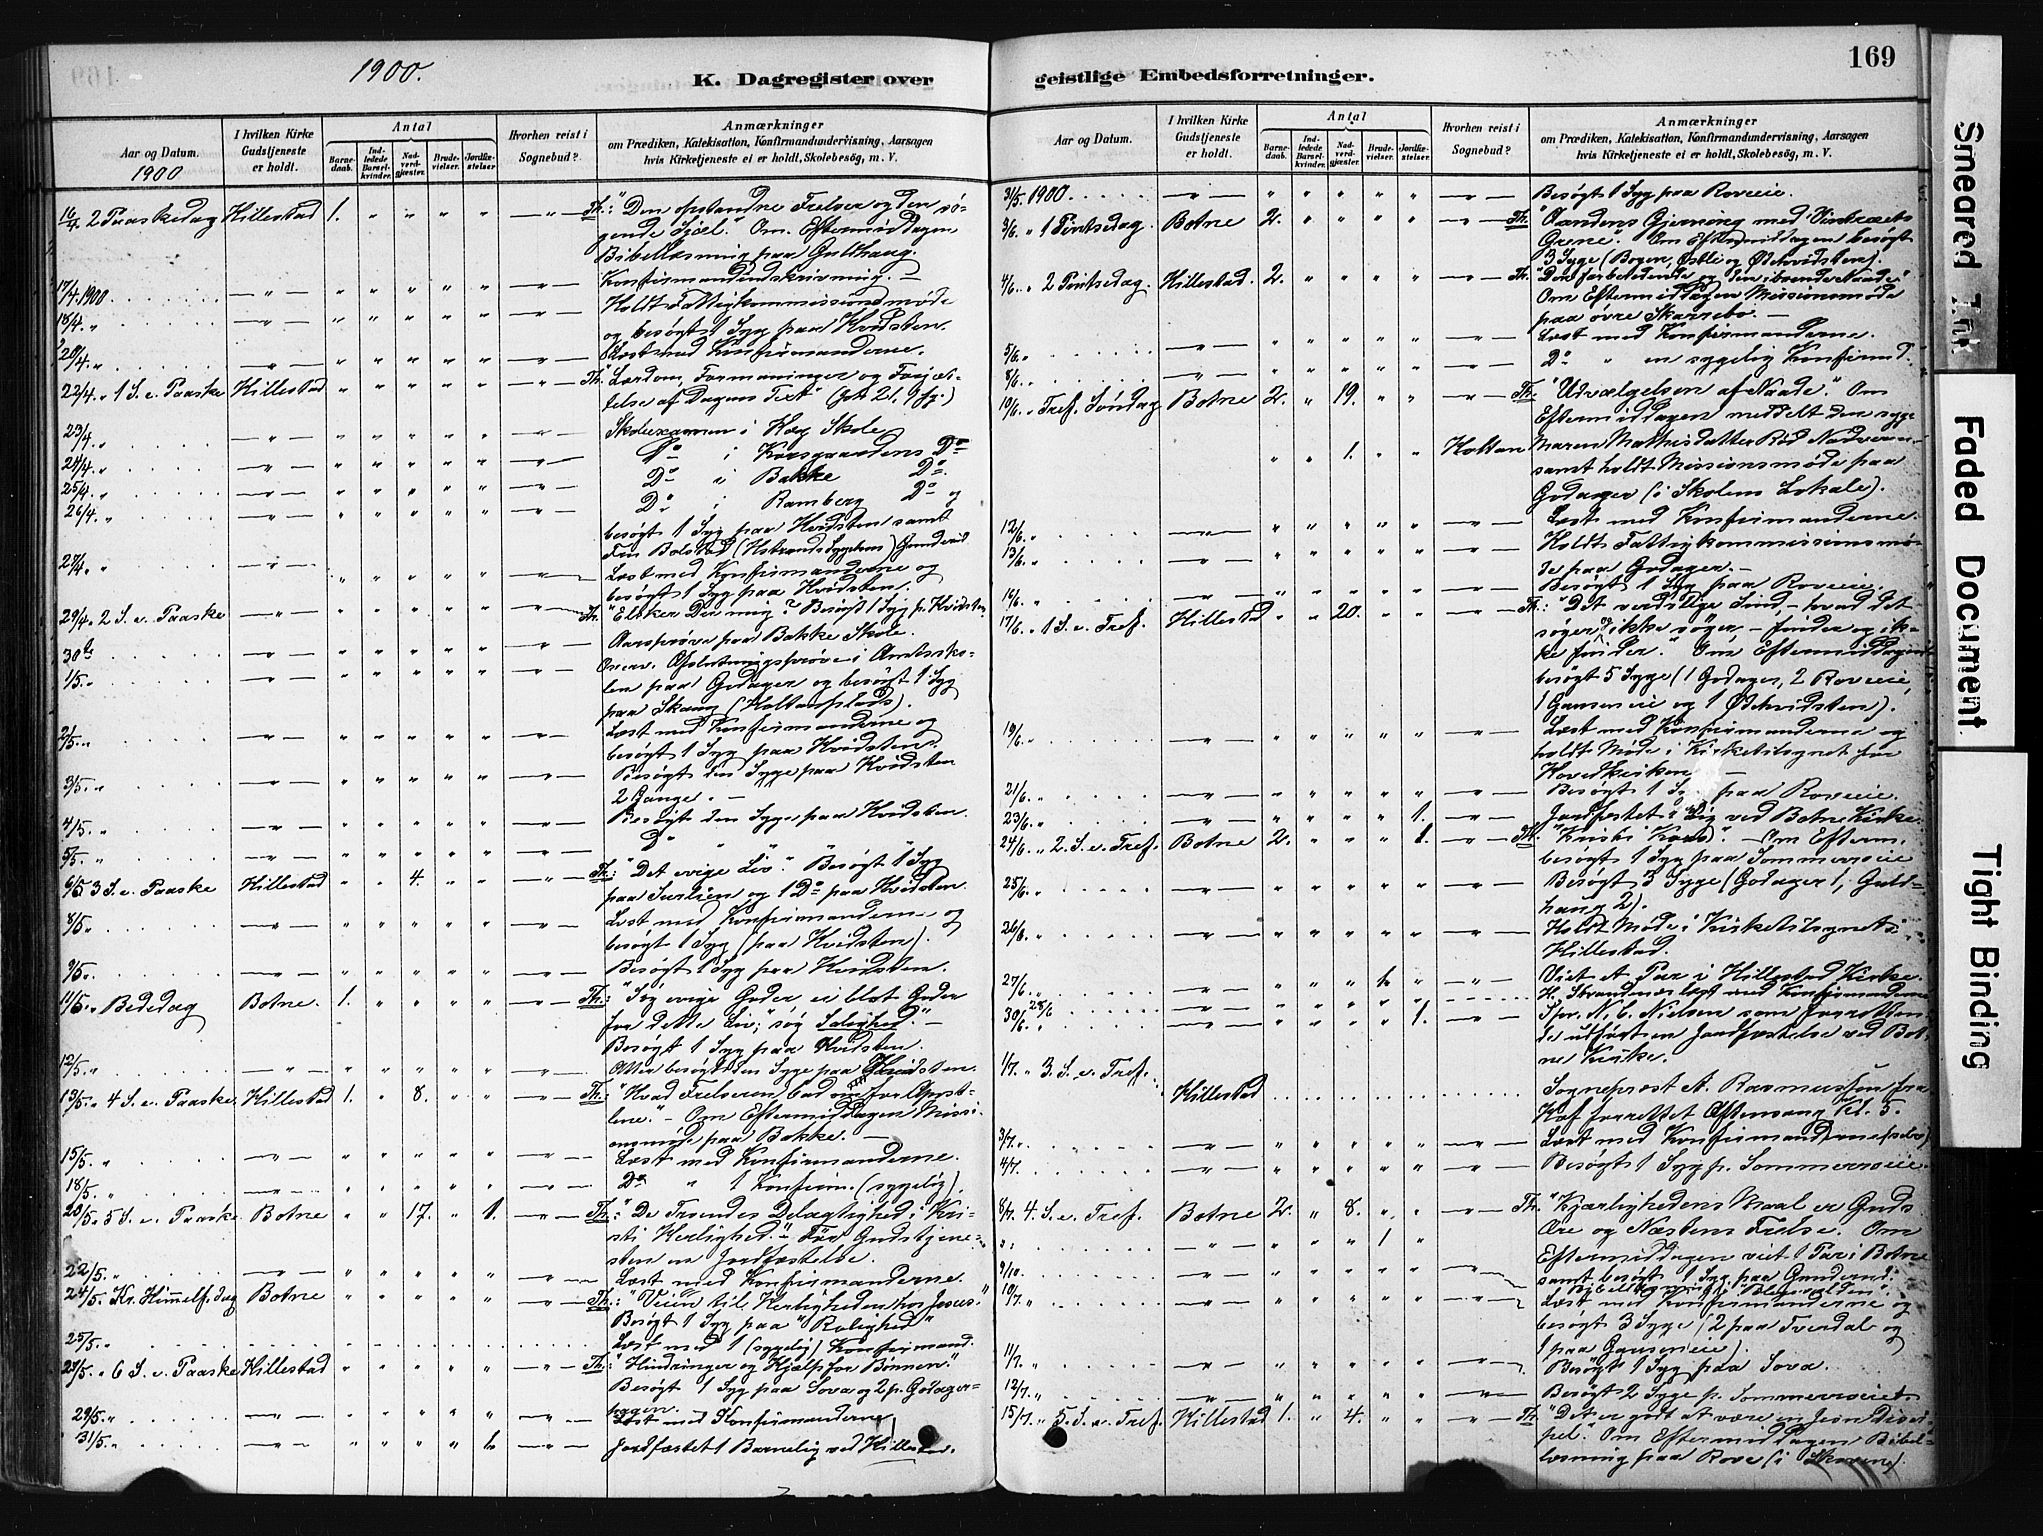 1900.
K. Dagregister over
Aar og Datum.
1900
I hvilken Kirke Gudstjeneste er holdt.
Antal
Barnedaab.
Indledede Barselkvinder.
Nadverdgjæster.
Brudevielser.
Jordfæstelser
Hvorhen reist i Sognebud?
Anmærkninger
om Prædiken, Katekisation, Konfirmandundervisning, Aarsagen
hvis Kirketjeneste ei er holdt, Skolebesøg, m. V.
16/4 2 Paaskedag Hillestad 1. " " " " — " — Th.: "Den opstandne Frelser og den sø-
gende Sjæl." Om Eftermiddagen
Bibellæsning paa Guldhaug.
17/4 1900 — " — " " " " " — " — Konfirmandindskrivning. —
18/4 " — " — " " " " " — " — Holdt Fattigkommissionsmøde
og besøgt 1 Syg paa Hvidsten.
20/4 " — " — " " " " " — " — Læst med Konfirmanderne.
22/4 " 1 S. e. Paaske Hillestad " " " " " — " — Th: "Lærdom, Formaninger og Forjæt-
telse af Dagens Text" (Joh 21. 1 fg.)
23/4 " — " — " " " " " — " — Skoleexamen i Hag Skole
24/4 " — " — " " " " " — " — Do i Korsgaardens Do
25/4 " — " — " " " " " — " — Do " Bakke Do.
26/4 " — " — " " " " " — " — Do i Ramberg Do og
besøgt 1 Syg paa Hvidsten samt
27/4 " — " — " " " " " — " — Læst med Konfirmanderne og
besøgt 1 Syg paa Hvidsten.
29/4 2 S. e. Paaske — " — " " " " " — " — Th. "Elsker Du mig?" Besøgt 1 Syg p. Hvidsten.
30te — " — " " " " " — " — Aarsprøve paa Bakke Skole.
1/5 " — " — " " " " " — " — Overv. Afslutningsprøve i Amtssko-
len paa Godager og besøgt 1 Syg
paa Skaug (Holtanplads).
2/5 " — " — " " " " " — " — Læst med Konfirmanderne og
besøgt 1 Syg paa Hvidsten.
3/5 " — " — " " " " " — " — Besøgt den Syge paa Hvidsten
2 Gange. —
4/5 " — " — " " " " " — " — Besøgt den Syge paa Hvidsten.
5/5 " — " — " " " " " — " — Do " "
6/5 3 S. e. Paaske Hillestad " " 4. " " — " — Th: "Det evige Liv". Besøgt 1 Syg
paa Sørlien og 1 Do paa Hvidsten.
8/5 " — " — " " " " " — " — Læst med Konfirmanderne og
besøgt 1 Syg (paa Hvidsten).
9/5 " — " — " " " " " — " — Besøgt 1 Syg paa Hvidsten.
11/5 " Bededag Botne. 1. " " " " — " — Th: "Søg evige Goder, ei blot Goder
for dette Liv; søg Salighed." —
Besøgt 1 Syg paa Hvidsten.
12/5 " — " — " " " " " — " — Atter besøgt den Syge paa Hvidsten.
13/5 " 4 S. e. Paaske Hillestad 1. " 8. " " — " — Th: "Hvad Frelseren bad om for Apost-
lene." — Om Eftermiddagen Missi-
onsmøde paa Bakke. —
15/5 " — " — " " " " " — " — Læst med Konfirmanderne.
18/5 " — " — " " " " " — " — Do " 1 Konfirm. (sygelig).
20/5 " 5 S. e. Paaske Botne " " 17. " 1. — " — Th: "De Troendes Delagtighed i Kri-
sti Herlighed." Før Gudstjene-
sten en Jordfæstelse.
22/5 " — " — " " " " " — " — Læst med Konfirmanderne.
24/5 " Kr. Himmelf. dag Botne " " " " " — " — Th: "Veien til Herligheden hos Jesus."
Besøgt 1 Syg paa "Rolighed"
25/5 " Læst med 1 (sygelig) Konfirmand.
27/5 " 6 S. e. Paaske Hillestad " " " " " — " — Th: "Hindringer og Hjælp for Børnene."
Besøgt 1 Syg paa Sova og 2 p. Godager-
hagen.
29/5 " — " — " " " " " — " — Læst med Konfirmanderne
31/5 " — " — " " " " 1. — " — Jordfæstet 1 Barnelig ved Hillestad.
geistlige Embedsforretninger.
169
Aar og Datum.
I hvilken Kirke Gudstjeneste er holdt.
Antal
Barnedaab.
Indledede Barselkvinder.
Nadverdgjæster.
Brudevielser.
Jordfæstelser.
Hvorhen reist i Sognebud?
Anmærkninger
om Prædiken, Katekisation, Konfirmandundervisning, Aarsagen
hvis Kirketjeneste ei er holdt, Skolebesøg, m. V.
31/5 1900 — " — " " " " " — " — Besøgt 1 Syg paa Roveie.
3/6 " 1 Pintsedag. Botne 2. " " " " — " — Th: Aandens Gjerning med "Vintræets
Grene". Om Eftermiddagen besøgt
3 Syge (Bogen, Østli og Ø Hvidsten).
4/6 " 2 Pintsedag. Hillestad. 2. " " " " — " — Th: "Den forberedende og den iboende Naade"
Om Eftermiddagen Missionsmøde
paa øvre Skarrebo. —
5/6 " — " — " " " " " — " — Læst med Konfirmanderne.
8/6 " — " — " " " " " — " — Do " en sygelig Konfirmd.
10/6 " Tref. Søndag Botne 2. " 19. " " — " — Th: "Udvælgelsen af Naade". Om
Eftermiddagen meddelt den syge
" " 1. " " Holtan Maren Mathisdatter Rød Nadveren
samt holdt Missionsmøde paa
Godager (i Skolens Lokale).
12/6 " — " — " " " " " — " — Læst med Konfirmanderne.
13/6 " — " — " " " " " — " — Holdt Fattigkommissionsmø-
de paa Godager. —
16/6 " — " — " " " " " — " — Besøgt 1 Syg paa Roveie.
17/6 " 1 S. e. Tref. Hillestad " " 20. " " — " — Th: "Det verdslige Sind, – hvad det
søger og ikke søger – finder og ik-
ke finder." Om Eftermiddagen
besøgt 5 Syge (1 Godager, 2 Roveie,
1 Gauseneie og 1 Ø Hvidsten).
19/6 " — " — " " " " " — " — Læst med Konfirmanderne og
holdt Møde i Kirketilsynet for
Hovedkirken —
21/6 " — " — " " " " " — " — Besøgt 1 Syg paa Roveie.
23/6 " — " — " " " " 1. — " — Jordfæstet 1 Lig ved Botne Kirke.
24/6 " 2. S. e. Tref. Botne 2. " " " 1. — " — Th: "Kristi Kors". — Om Efterm.
besøgt 1 Syg paa Sommerroeie
25/6 " — " — " " " " " — " — Besøgt 3 Syge (Godager 1, Guld-
haug 2).
26/6 " — " — " " " " " — " — Holdt Møde i Kirketilsynet
Hillestad.
27/6 " — " — " " " 1. " — " — Viet et Par i Hillestad Kirke.
28/6 H. Strandenæs læst med Konfirmanderne
30/6 " — " — " " " " 1. — " — Spr. N. C. Nielsen som forretten-
de udførte en Jordfæstelse ved Bot-
ne Kirke.
1/7 " 3. S. e. Tref. Hillestad Sognepræst A. Rasmussen fra
Hof forrettet Aftensang Kl. 5.
3/7 " — " — " " " " " — " — Læst med Konfirmanderne (selv)
4/7 " — " — " " " " " — " — Besøgt 1 Syg p. Sommerroeie.
8/7 4. S. e. Tref. Botne 2. " 8. " " — " — Th. "Kjærlighedens Maal er Guds
Ære og Næstens Frelse". Om
" — " — " " " 1 " Eftermiddagen viet 1 Par i Botne
9/10 — " — " " " " " — " — samt besøgt 1 Syg paa Gunderud.
10/7 " — " — " " " " " — " — Læst med Konfirmanderne og
besøgt 3 Syge (2 paa Tverdal og
1 paa Gauseneie).
11/7 " — " — " " " " " — " — Besøgt 1 Syg paa Sova.
12/7 " — " — " " " " " — " — Besøgt 2 Syge p. Sommerroeiet
15/7 " 5. S. e. Tref. Hillestad 1. " 4. " " — " — Th: "Det er godt at være en Jesu Disci-
pel." Om Eftermiddagen Bibel-
læsning paa Rove (i Skoven).
Smeared Ink
Faded Document
Tight Binding